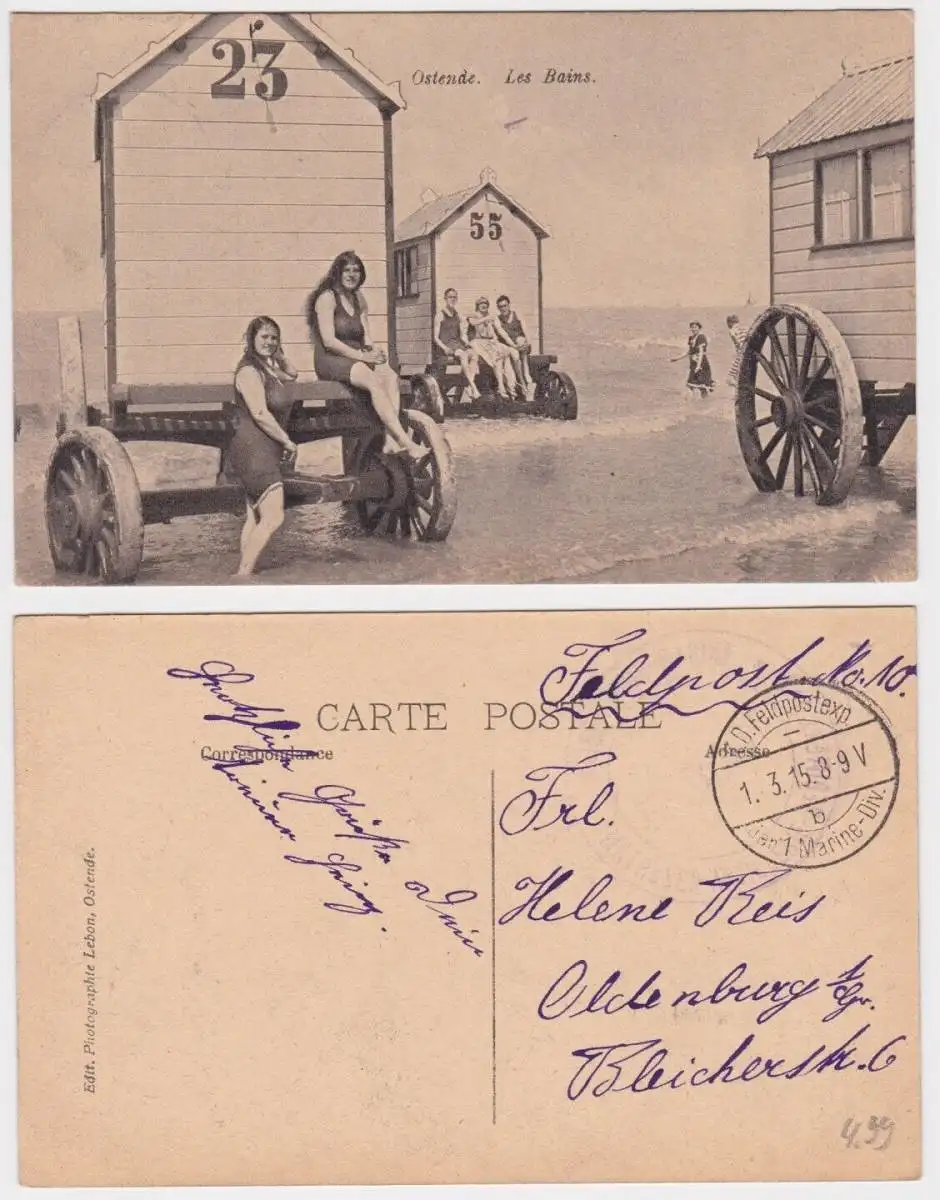 23
Ostende. Les Bains.
55
Feldpost No. 10.
CARTE POSTALE
Correspondance
Adresse
K.D. Feldpostexp.
1. 3. 15. 8-9 V
b
der 1 Marine-Div.
Herzliche Grüße
Frl.
Helene Reis
Oldenburg i/Gr.
Bleicherstr. 6
Edit. Photographie Lebon, Ostende.
4.99